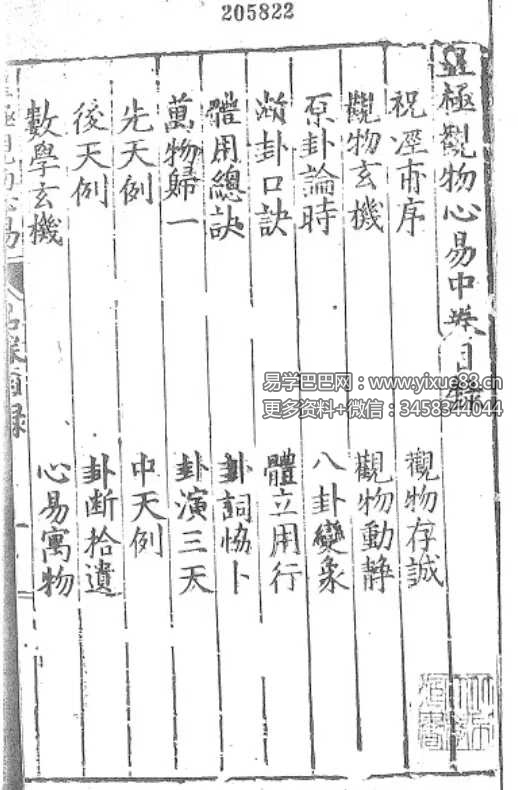 205822
皇極觀物心易中卷目錄
祝涇甫序
觀物存誠
觀物玄機
觀物動靜
原卦論時
八卦變象
斷卦口訣
體立用行
體用總訣
卦詞恊卜
萬物歸一
卦演三天
先天例
中天例
後天例
卦断拾遺
數學玄機
心易寓物
易学巴巴网：www.yixue88.cn
更多资料+微信：3458344044